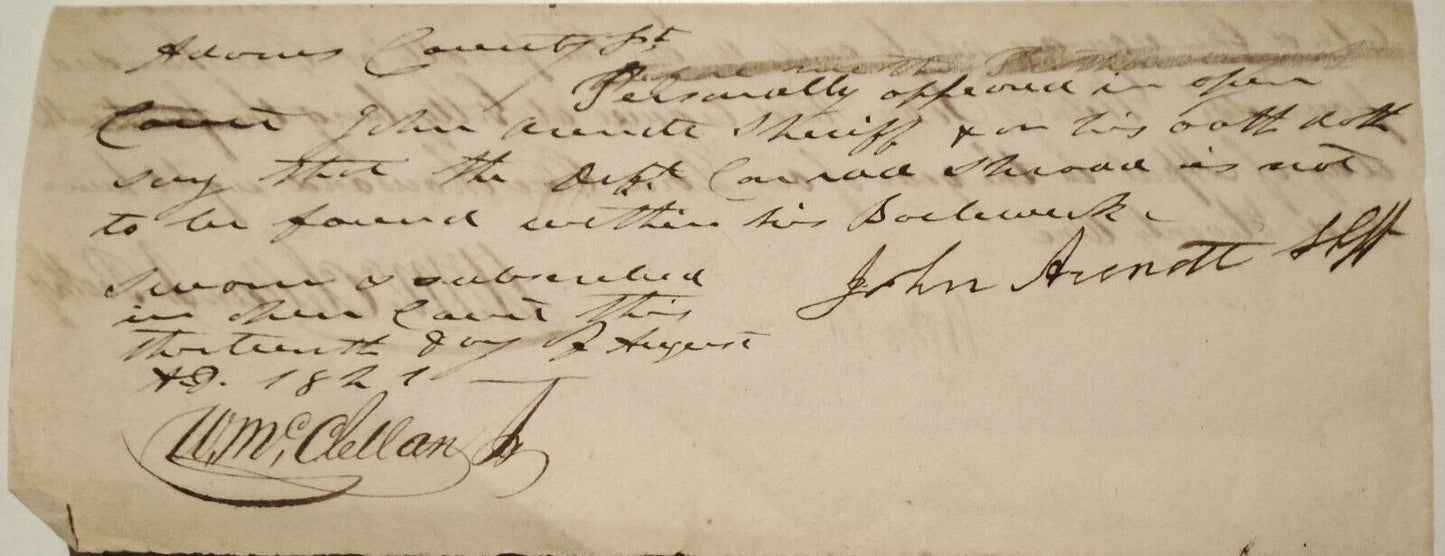 Adams County Ss
Personally appeared in open
Court John Arendt Sheriff & on his oath doth
say that the Deft. Conrad Shroad is not
to be found within his Bailewick
John Arendt Shff
Sworn & subscribed
in Open Court this
thirteenth day of August
AD. 1821
W. McClellan Jr